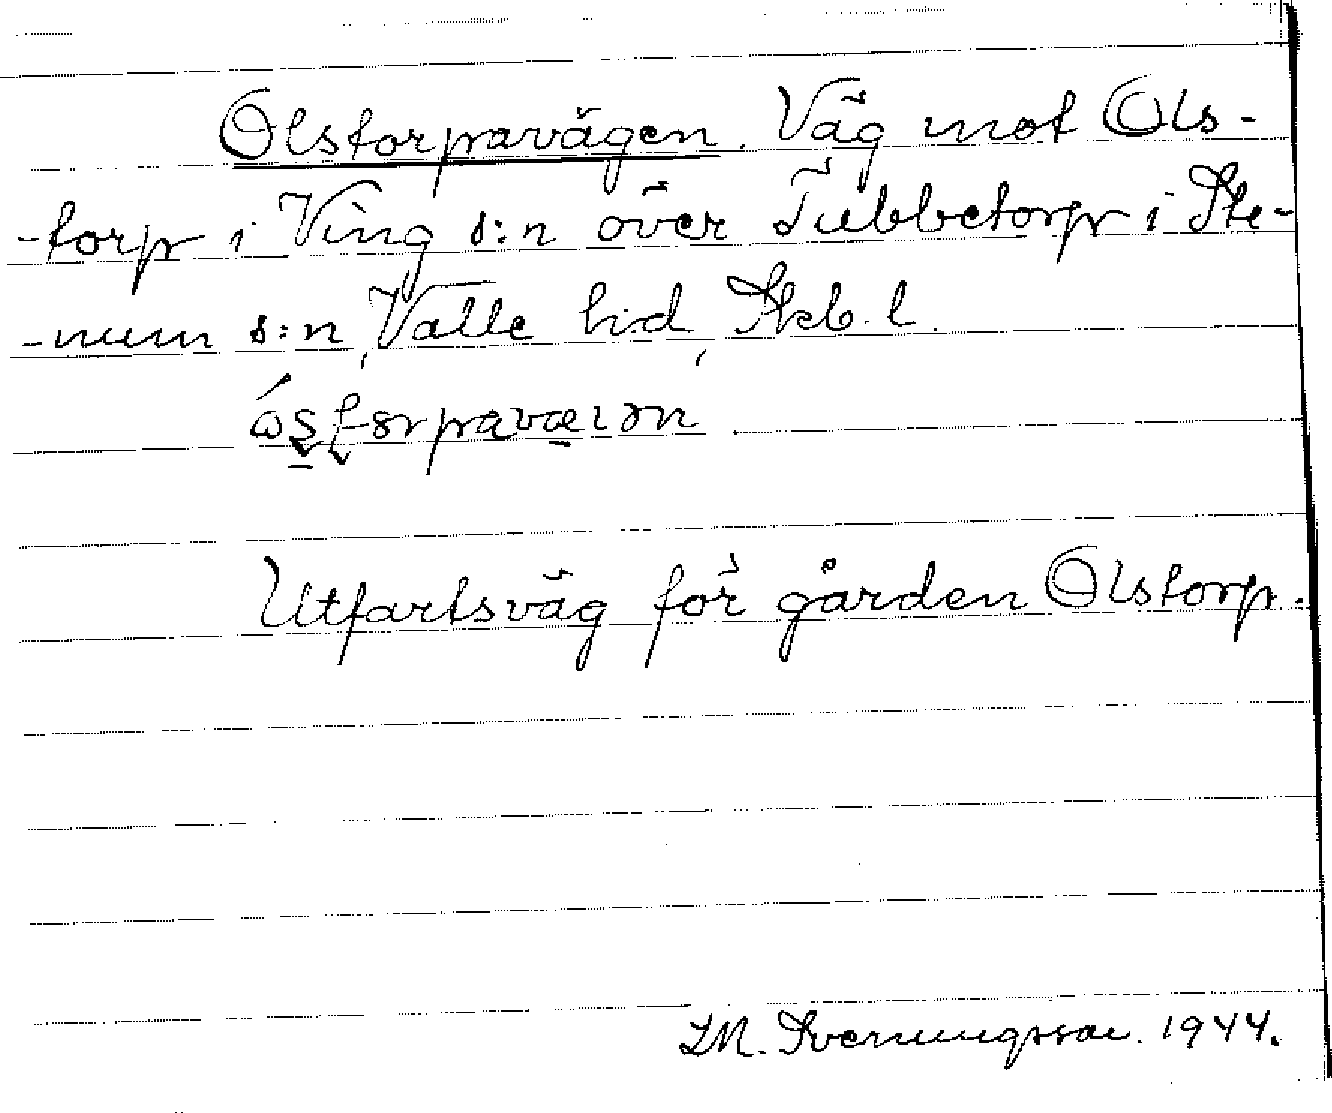 Olstorpavägen. Väg mot Ols-
-torp i Ving s:n över Tubbetorp i Ste-
-num s:n, Valle hd, Skb. l.
Utfartsväg för gården Olstorp.
LM. Svenungsson. 1944.